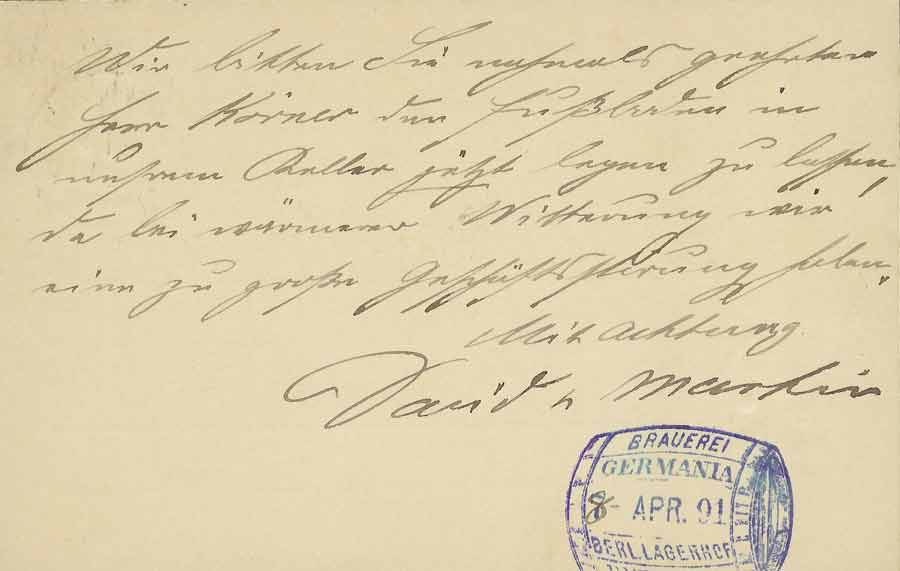 Wir bitten Sie nochmals geehrter
Herr Körner den Fußboden in
unserem Keller jetzt legen zu lassen,
da bei wärmerer Witterung wir
eine zu große Geschäftsstörung haben.
Mit Achtung
David & Martin
BRAUEREI
GERMANIA
8- APR. 91
BERL. LAGERHOF